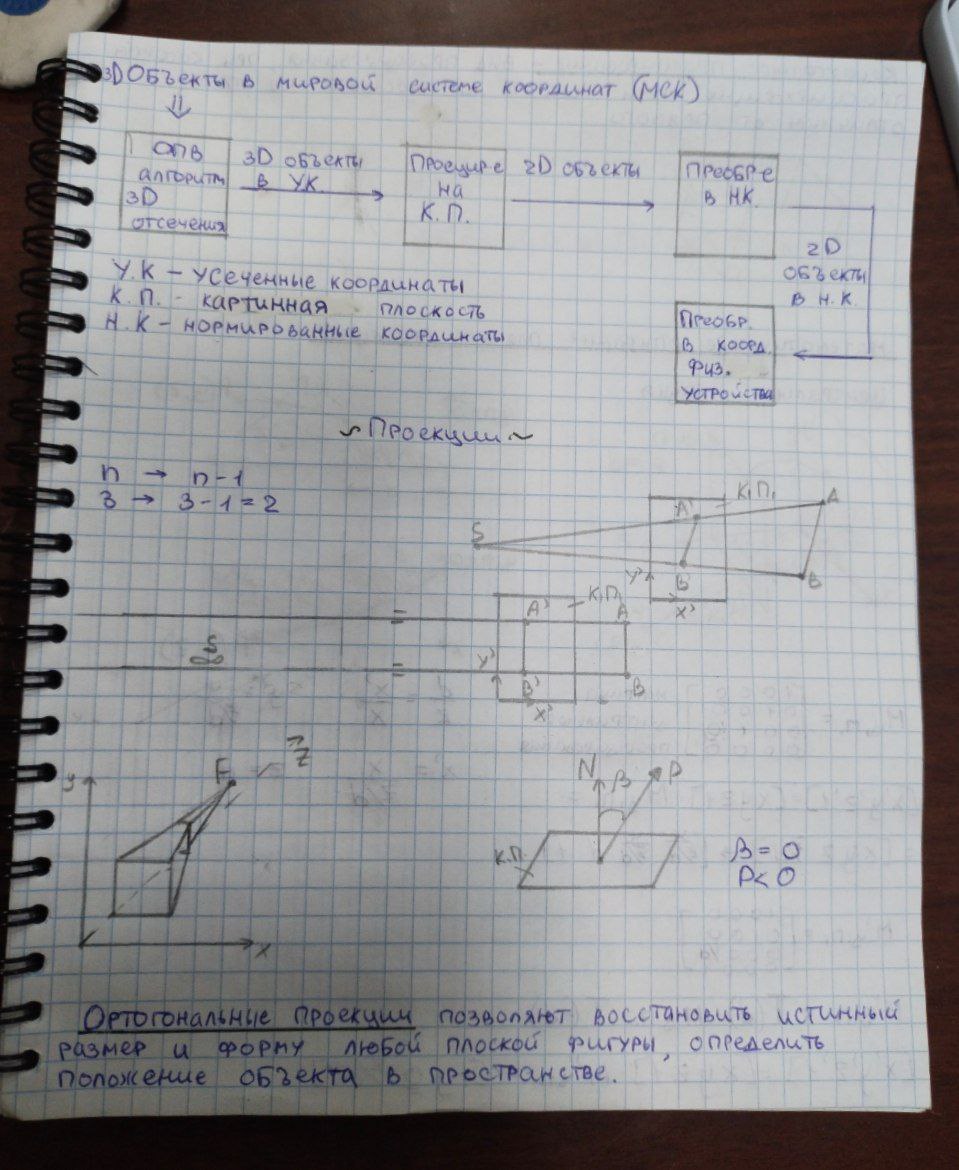 3D Объекты в мировой системе координат (МСК)
⇓
ОПВ
алгоритм
3D
отсечения
3D объекты
в УК.
Проецир-е
на
К.П.
2D объекты
Преобр-е
в НК.
2D
объекты
в Н.К.
Преобр.
в коорд.
физ.
устройства
У.К – усеченные координаты
К.П. - картинная плоскость
Н.К – нормированные координаты
~ Проекции ~
n → n-1
3 → 3-1=2
S
A'
К.П.
A
B'
B
Y'
X'
S
∞
A'
К.П.
A
Y'
B'
B
X'
y
F
Z
x
N
β
P
К.П.
β = 0
P < 0
Ортогональные проекции позволяют восстановить истинный
размер и форму любой плоской фигуры, определить
положение объекта в пространстве.